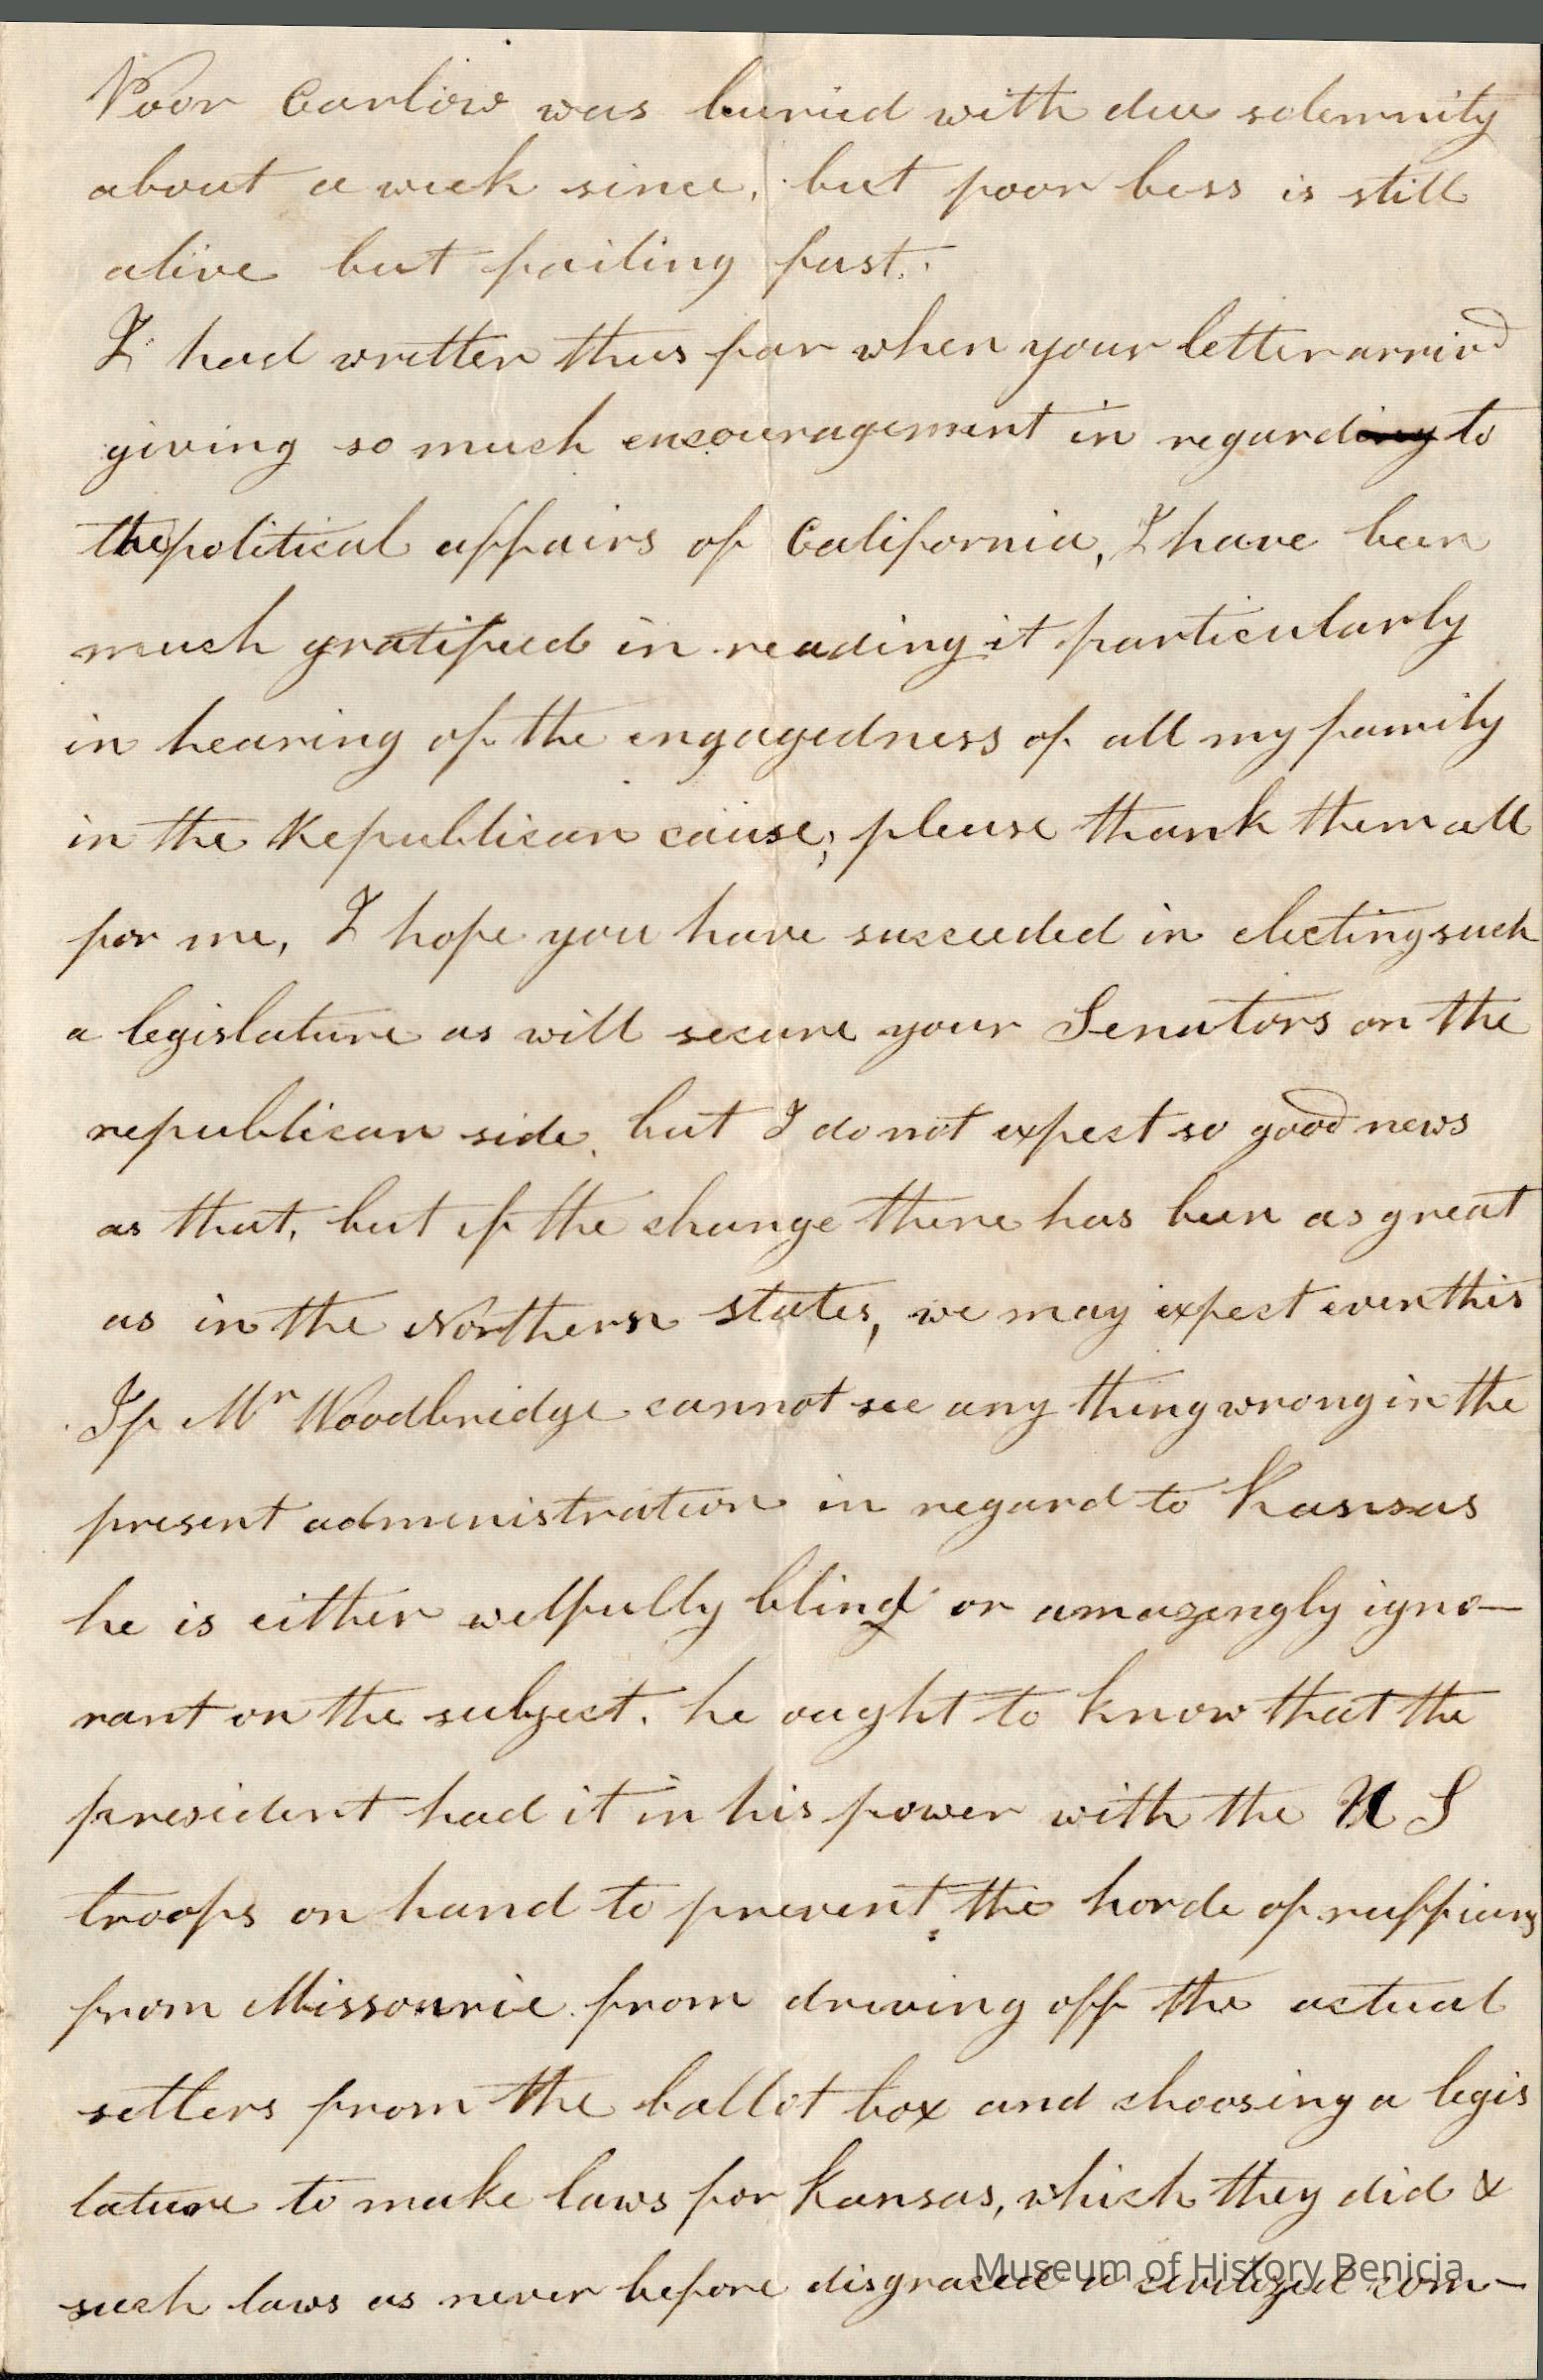 Poor Carlow was buried with due solemnity
about a week since, but poor bess is still
alive but failing fast.
I had written thus far when your letter arrivd
giving so much encouragement in regarding to
the political affairs of California, I have been
much gratified in reading it particularly
in hearing of the engagedness of all my family
in the Republican cause; please thank them all
for me, I hope you have succeeded in electing such
a legislature as will secure your Senators on the
republican side, but I do not expect so good news
as that, but if the change there has been as great
as in the Northern states, we may expect even this
If Mr Woodbridge cannot see any thing wrong in the
present administration in regard to Kansas
he is either wilfully blind or amazingly igno-
rant on the subject. he ought to know that the
president had it in his power with the U S
troops on hand to prevent the horde of ruffians
from Missourie from driving off the actual
setlers from the ballot box and choosing a legis
lature to make laws for Kansas, which they did &
such laws as never before disgraced a civilized com-
Museum of History Benicia